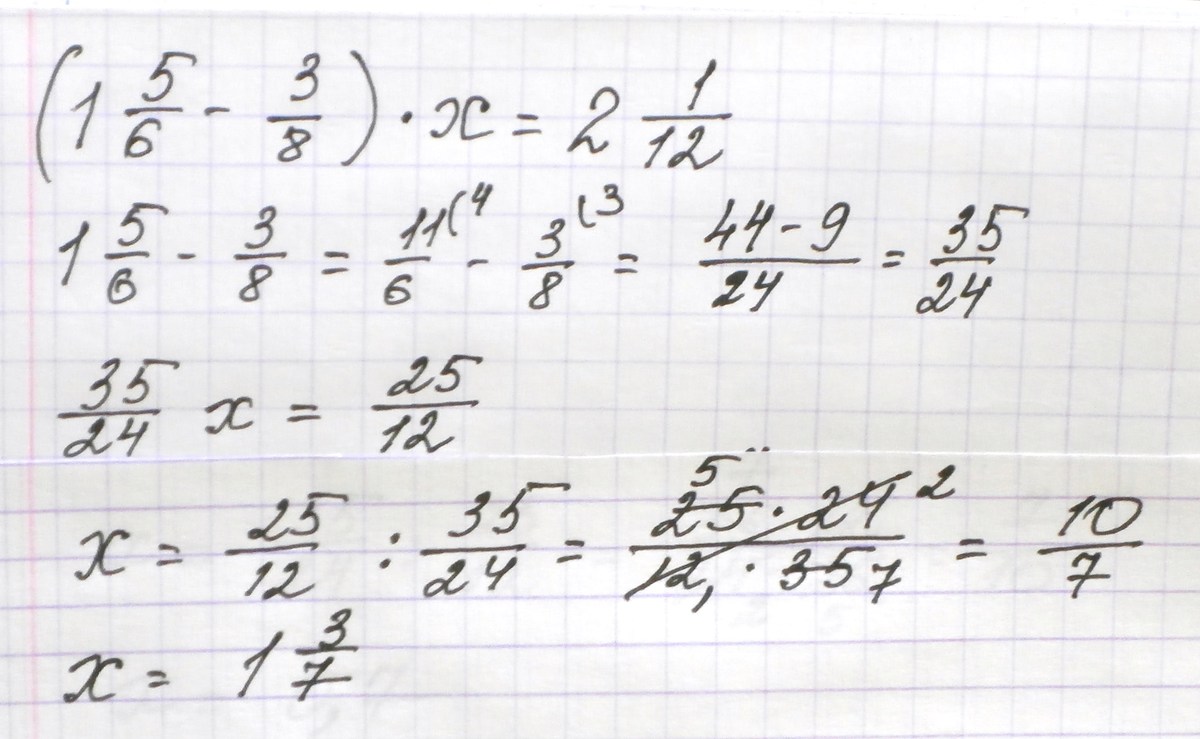 (1 5/6 - 3/8) · x = 2 1/12
1 5/6 - 3/8 = 11(4/6 - 3(3/8 = 44-9/24 = 35/24
35/24 x = 25/12
x = 25/12 : 35/24 = 5 25 · 24 2/12 1 · 35 7 = 10/7
x = 1 3/7